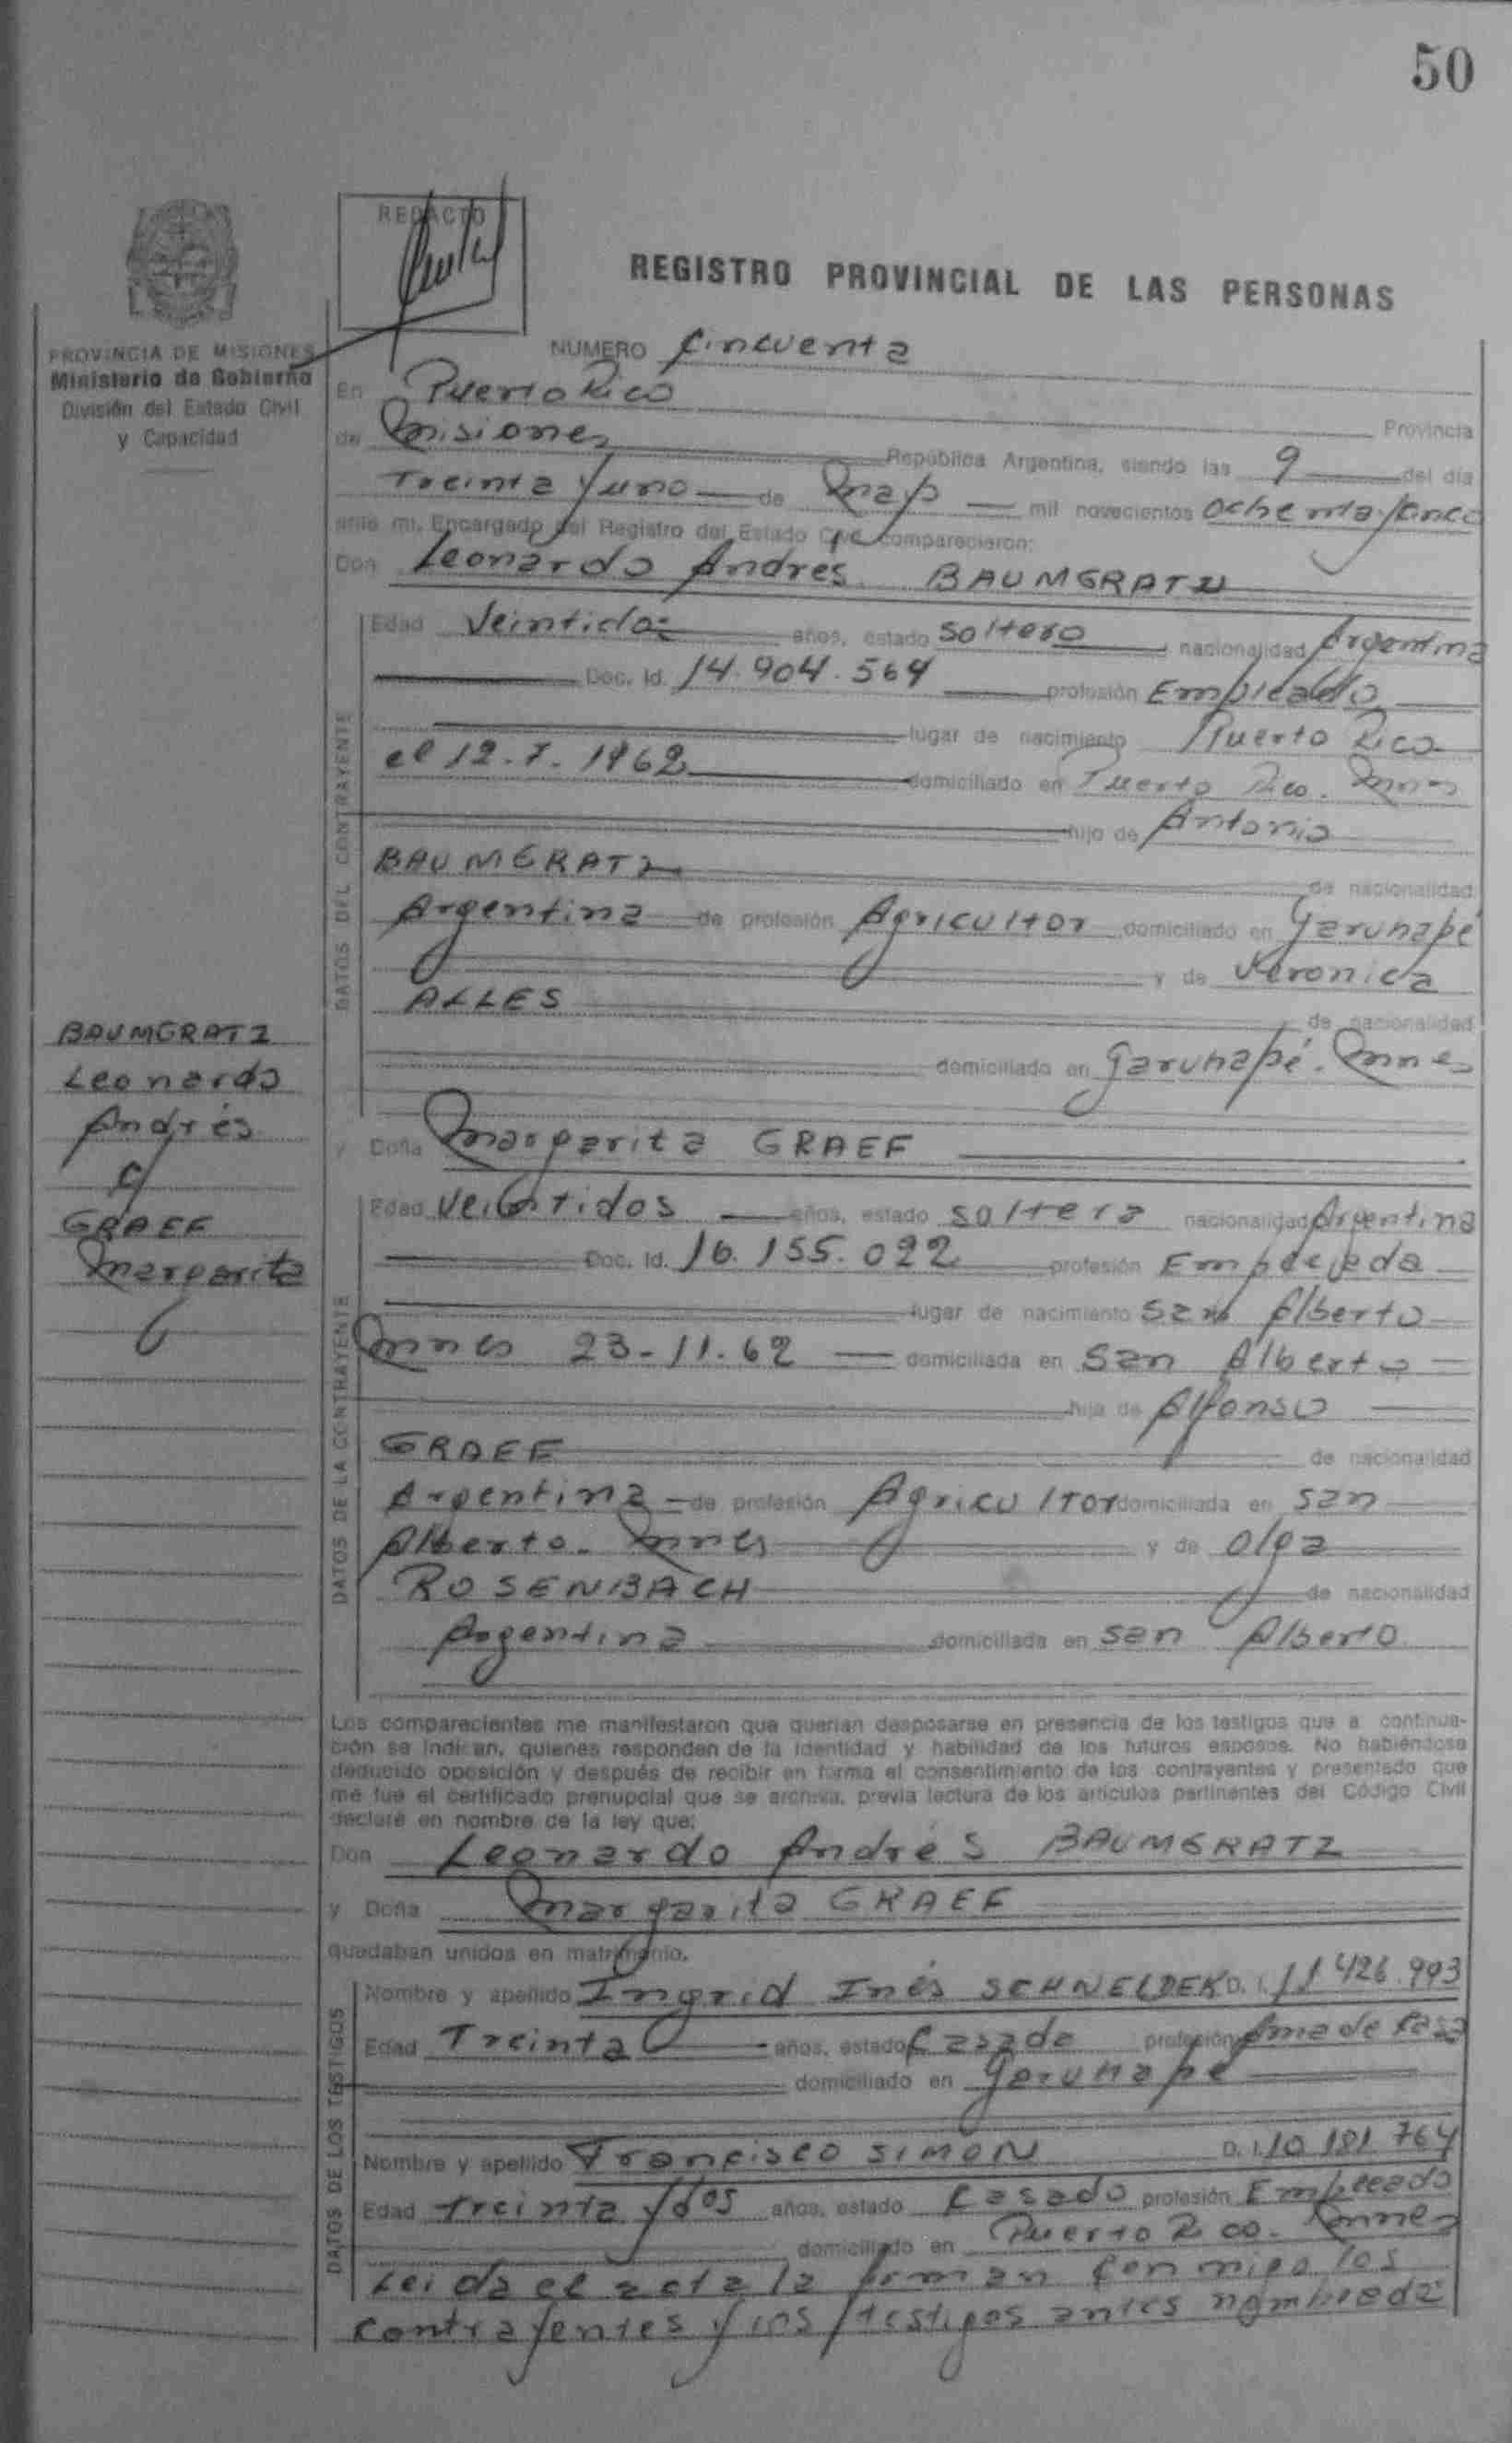 50
REDACTO
REGISTRO PROVINCIAL DE LAS PERSONAS
PROVINCIA DE MISIONES
Ministerio de Gobierno
División del Estado Civil
y Capacidad
NUMERO Cincuenta
En Puerto Rico
Provincia
de Misiones República Argentina, siendo las 9 del día
Treinta y uno de Mayo mil novecientos ochenta y cinco
ante mi, Encargado del Registro del Estado Civil comparecieron:
Don Leonardo Andrés BAUMGRATZ
DATOS DEL CONTRAYENTE
Edad Veintidos años, estado soltero nacionalidad Argentina
Doc. Id. 14.904.564 profesión Empleado
lugar de nacimiento Puerto Rico
el 12.7.1962 domiciliado en Puerto Rico. Mnes
hijo de Antonio
BAUMGRATZ de nacionalidad
Argentina de profesión Agricultor domiciliado en Garuhapé
y de Veronica
ALLES de nacionalidad
domiciliado en Garuhapé. Mnes
BAUMGRATZ
Leonardo
Andrés
c/
GRAEF
Margarita
y Doña Margarita GRAEF
DATOS DE LA CONTRAYENTE
Edad Veintidos años, estado soltera nacionalidad Argentina
Doc. Id. 16.155.022 profesión Empleada
lugar de nacimiento San Alberto
Mnes 23-11.62 domiciliada en San Alberto
hija de Alfonso
GRAEF de nacionalidad
Argentina de profesión Agricultor domiciliada en San
Alberto. Mnes y de Olga
ROSENBACH de nacionalidad
Argentina domiciliada en San Alberto
Los comparecientes me manifestaron que querían desposarse en presencia de los testigos que a continua-
ción se indican, quienes responden de la identidad y habilidad de los futuros esposos. No habiéndose
deducido oposición y después de recibir en forma el consentimiento de los contrayentes y presentado que
me fue el certificado prenupcial que se archiva, previa lectura de los artículos pertinentes del Código Civil
declaré en nombre de la ley que:
Don Leonardo Andrés BAUMGRATZ
y Doña Margarita GRAEF
quedaban unidos en matrimonio.
DATOS DE LOS TESTIGOS
Nombre y apellido Ingrid Inés SCHNEIDER D. I. 11 426.993
Edad Treinta años, estado Casada profesión Ama de Casa
domiciliado en Garuhapé
Nombre y apellido Francisco SIMON D. I. 10 181 764
Edad treinta y dos años, estado Casado profesión Empleado
domiciliado en Puerto Rico. Mnes
Leida el acta la firman conmigo los
contrayentes y los testigos antes nombrados